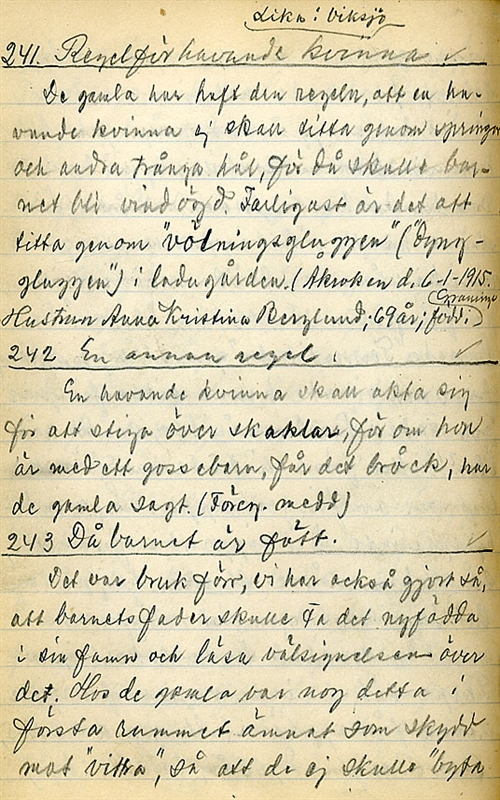 Lika: Viksjö
241. Regel för havande kvinna ✓
De gamla har haft den regeln, att en ha-
vande kvinna ej skall titta genom springor
och andra trånga hål, för då skulle bar-
net bli vindögd. Farligast är det att
titta genom "völningsgluggen" ("dyng-
gluggen") i ladugården. (Åkroken d. 6-1-1915.
Hustrun Anna Kristina Berglund; 69 år; född i
Graninge)
242 En annan regel. ✓
En havande kvinna skall akta sig
för att stiga över skaklar, för om hon
är med ett gossebarn, får det bråck, har
de gamla sagt. (Föreg. medd)
243 Då barnet är fött. ✓
Det var bruk förr, vi har också gjort så,
att barnets fader skulle ta det nyfödda
i sin famn och läsa välsignelsen över
det. Hos de gamla var nog detta i
första rummet ämnat som skydd
mot "vittra", så att de ej skulle "byta